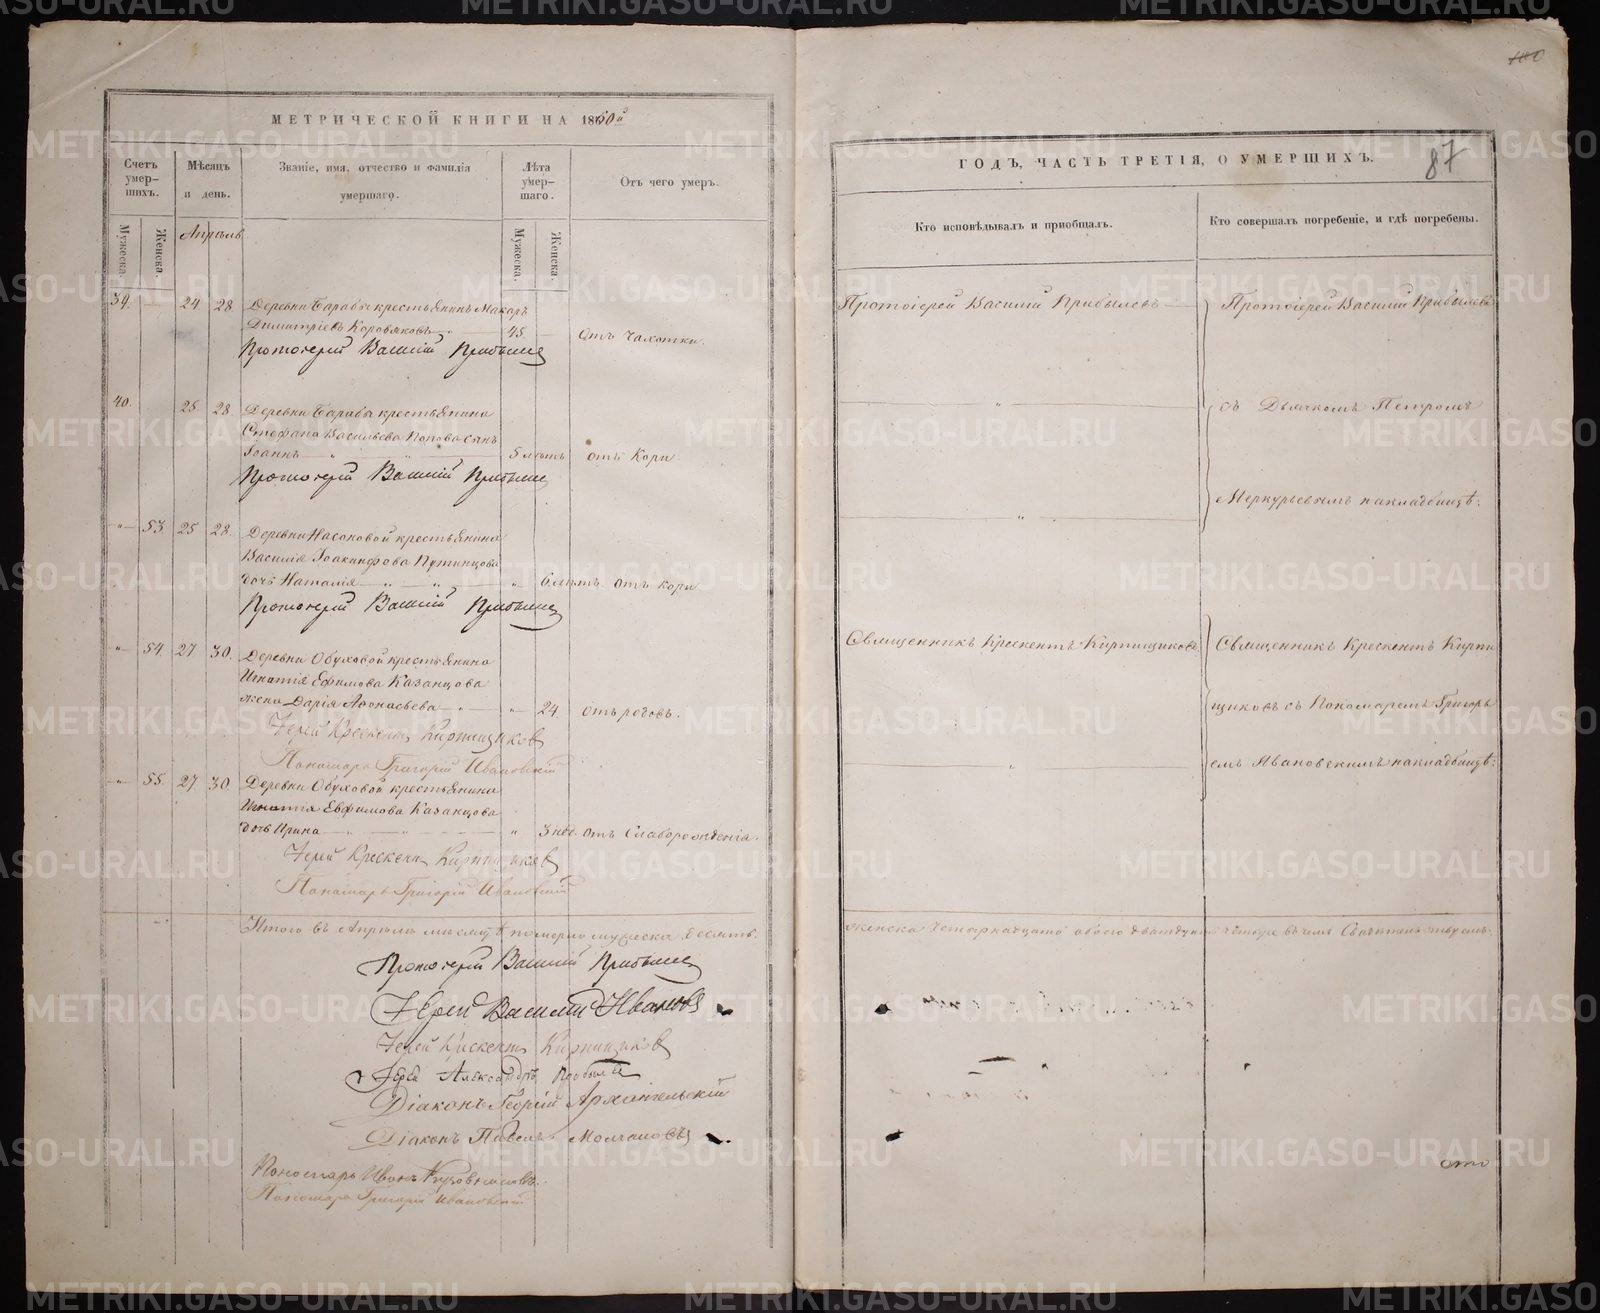 МЕТРИЧЕСКОЙ КНИГИ НА 1850й
Счетъ умер-шихъ.
Мѣсяцъ и день.
Званіе, имя, отчество и фамилія умершаго.
Лѣта умер-шаго.
Отъ чего умеръ.
Мужеска. Женска.
Апрѣль
Мужеска. Женска.
39. 24 28 Деревни Бараба крестьянинъ Макаръ
Димитріевъ Коровяковъ 45 Отъ Чахотки.
Протоіерей Василій Прибылевъ
40. 25 28 Деревни Бараба крестьянина
Стефана Васильева Попова сынъ
Іоаннъ 5 лѣтъ отъ Кори
Протоіерей Василій Прибылевъ
" 53 25 28. Деревни Насоновой крестьянина
Василія Іоакинфова Путинцова
дочь Наталія " 6 лѣтъ отъ Кори
Протоіерей Василій Прибылевъ
" 54. 27 30. Деревни Обуховой крестьянина
Игнатія Ефимова Казанцова
жена Дарія Афонасьева " 24. отъ родовъ.
Іерей Крескентъ Кирпищиковъ
Пономарь Григорій Ивановскій
" 55. 27 30 Деревни Обуховой крестьянина
Игнатія Евфимова Казанцова
дочь Ирина " 3 нед. отъ Слаборожденія.
Іерей Крескентъ Кирпищиковъ
Пономарь Григорій Ивановскій
Итого въ Апрѣлѣ мѣсяцѣ померло мужеска десять.
Протоіерей Василій Прибылевъ
Іерей Василій Ивановъ
Іерей Крискентъ Кирпищиковъ
Іерей Александръ
Діаконъ Георгій Архангельскій
Діаконъ Павелъ Молчановъ
Пономарь Иванъ
Пономарь Григорій Ивановскій
100
ГОДЪ, ЧАСТЬ ТРЕТІЯ, О УМЕРШИХЪ.
87
Кто исповѣдывалъ и пріобщалъ.
Кто совершалъ погребеніе, и гдѣ погребены.
Протоіерей Василій Прибылевъ
Протоіерей Василій Прибылевъ
" съ Дьячкомъ Петромъ
Меркурьевымъ на кладбищѣ.
"
Священникъ Крескентъ Кирпищиковъ
Священникъ Крескентъ Кирпи
щиковъ съ Пономаремъ Григорь
емъ Ивановскимъ на кладбищѣ.
"
женска Четырнадцать обоего двадцать четыре въ чемъ Свидѣтельствуемъ.
METRIKI.GASO-URAL.RU